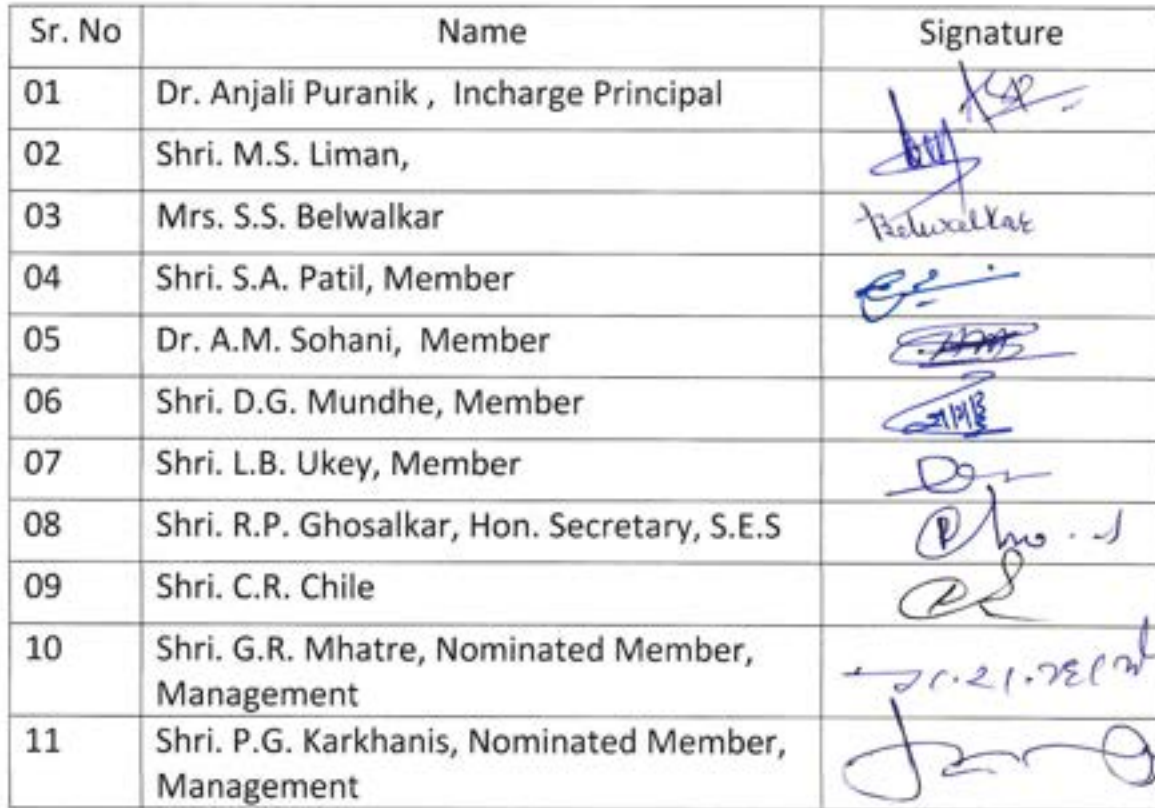 Sr. No Name Signature
01 Dr. Anjali Puranik , Incharge Principal
02 Shri. M.S. Liman,
03 Mrs. S.S. Belwalkar Belwalkar
04 Shri. S.A. Patil, Member
05 Dr. A.M. Sohani, Member
06 Shri. D.G. Mundhe, Member
07 Shri. L.B. Ukey, Member
08 Shri. R.P. Ghosalkar, Hon. Secretary, S.E.S
09 Shri. C.R. Chile
10 Shri. G.R. Mhatre, Nominated Member,
Management
11 Shri. P.G. Karkhanis, Nominated Member,
Management